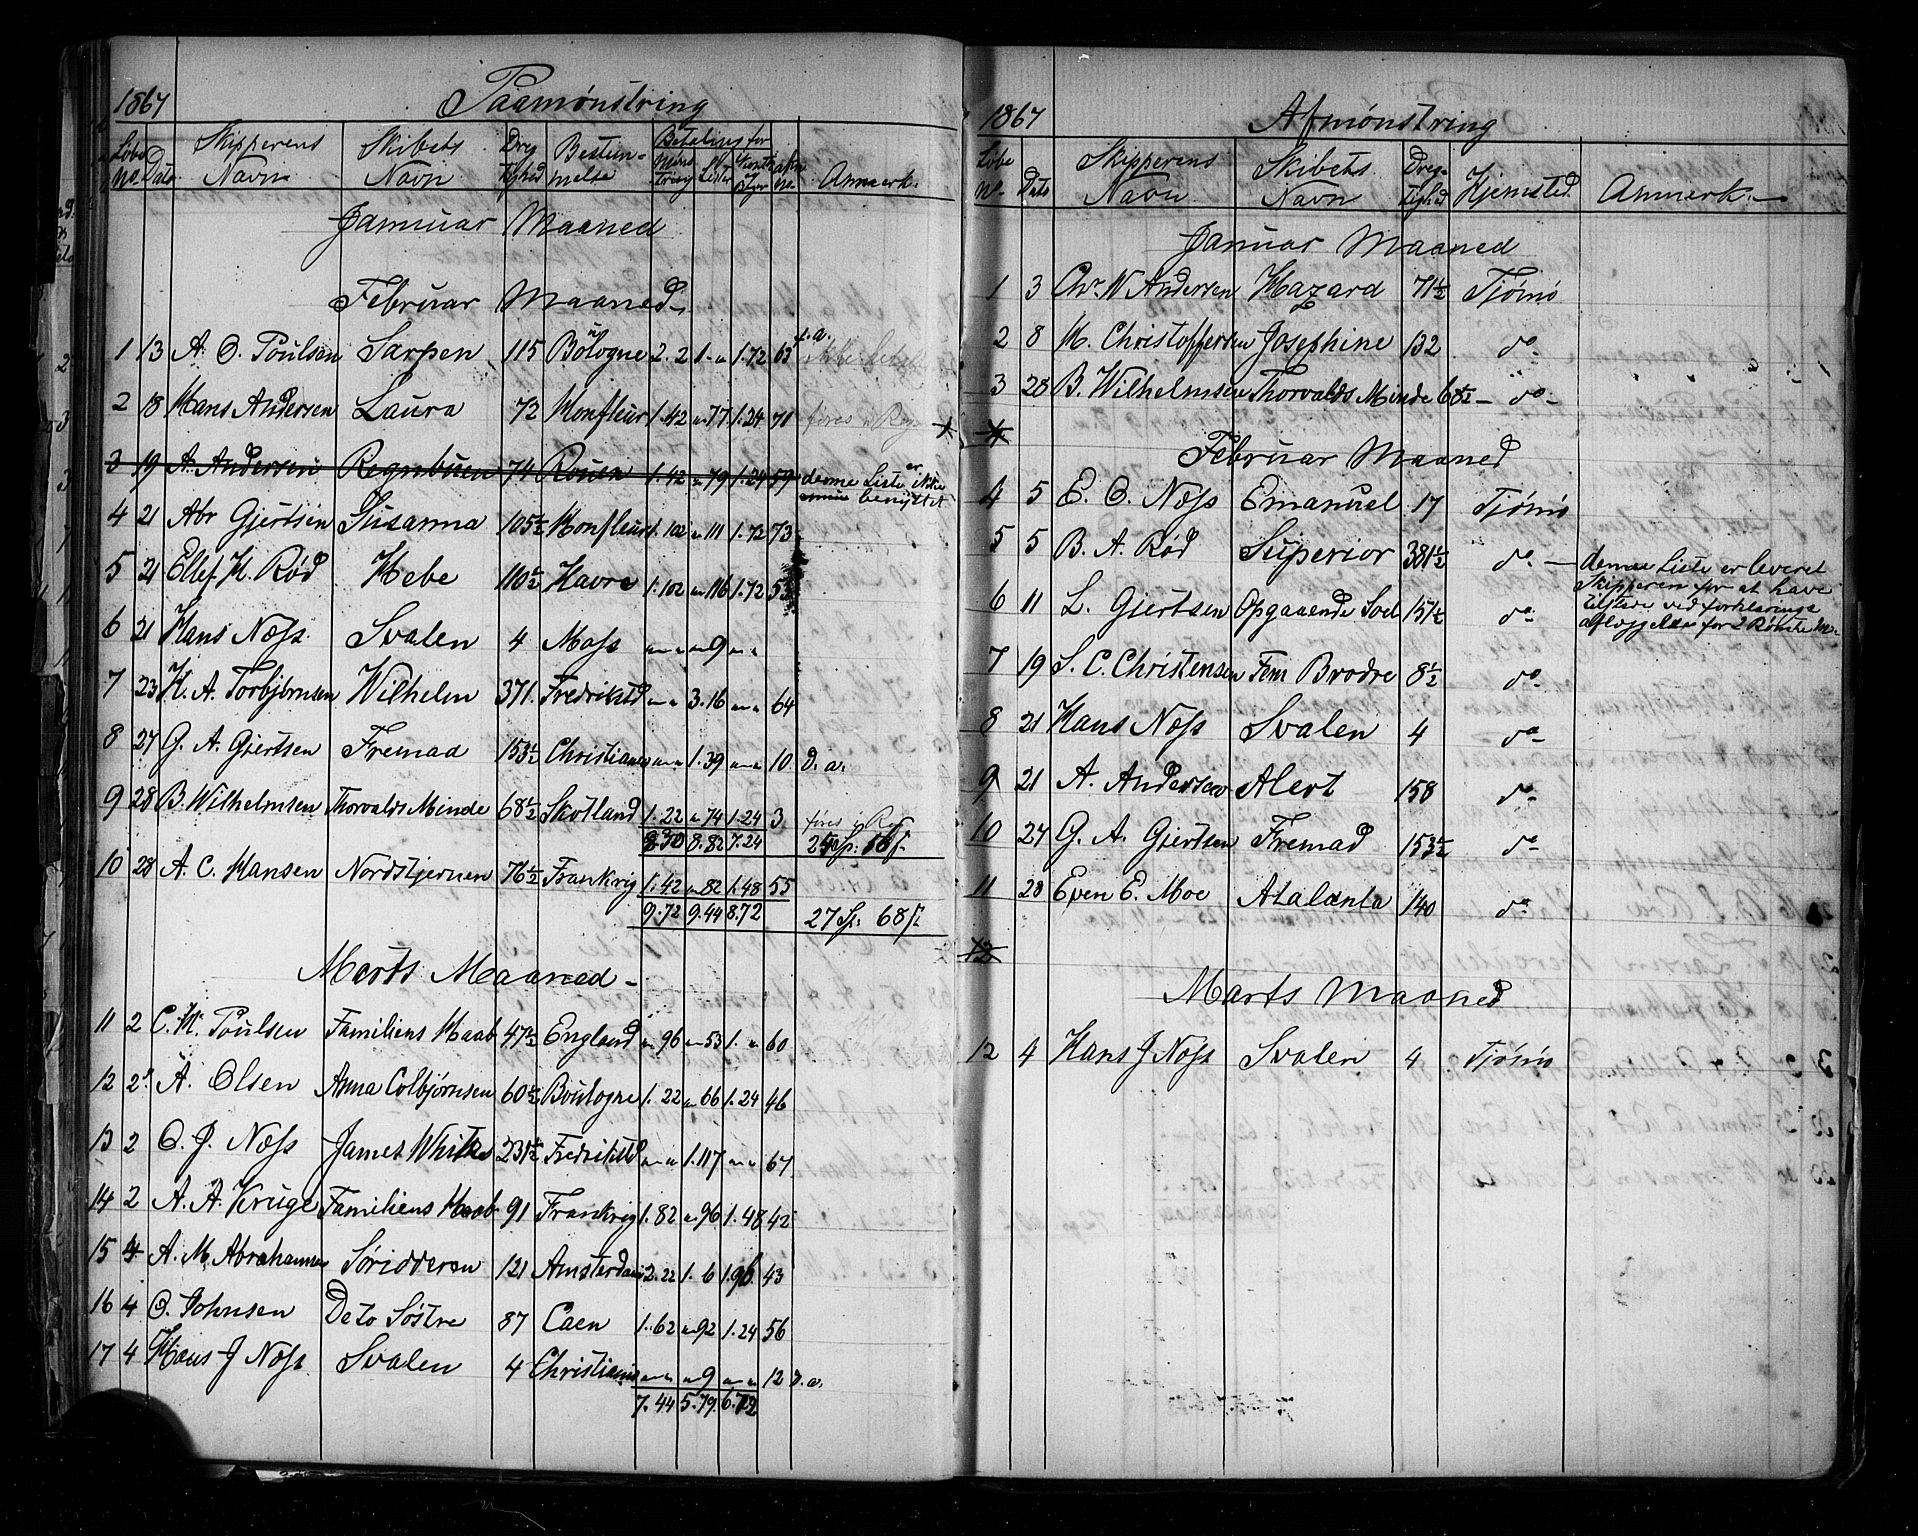 1867 Paamønstring
Løbe No. Dato Skipperens Navn Skibets Navn Dreg tighed Bestem- melse Betaling for Møns tring Anmærk.
Januar Maaned
Februar Maaned
1 13 A. O. Poulsen Sarpen 115 Boulogne 2. 2 1. " 1.72 63 f. a.
2 18 Hans Andersen Laura 72 Honfleur 1.42 " 77 1.24 71
3 19 A. Andersen Regnbuen 74 Rouen 1.42 " 79 1.24 59 denne Liste er ikke benyttet
4 21 Abr Gjertsen Susanna 105½ Honfleur 1.102 " 111 1.72 73
5 21 Ellef H. Rød Hebe 110½ Havre 1.102 " 116 1.72 53
6 21 Hans Næss Svalen 4 Moss " " " 9 " "
7 23 H. A. Torbjørnsen Wilhelm 371. Fredrikstd " " 3.16 " " 64
8 27 G. A. Gjertsen Fremad 153½ Christiania " " 1.39 " " 10 d. a.
9 28 B. Wilhelmsen Thorvalds Minde 68½ Skotland 1.22 " 74 1.24 3
8.30 8.82 7.24
10 28 A. C. Hansen Nordstjernen 76½ Frankrig 1.42 " 82 1.48 55
9.72 9.44 8.72 27 Sp. 68 ß
Marts Maaned
11 2 C. H. Poulsen Familiens Haab 47½ England " 96 " 53 1. " 60
12 2 A. Olsen Anna Colbjørnsen 60½ Boulogne 1.22 " 66 1.24 46
13 2 O. J. Næss James White 231½ Fredrikstd " " 1.117 " " 67
14 2 A. A. Kruge Familiens Haab 91 Frankrig 1.82 " 96 1.48 42
15 4 A. M. Abrahamsen Søridderen 121 Amsterdam 2.22 1. 6 1.96 43
16 4 O. Johnsen De to Søstre 87 Caen 1.62 " 92 1.24 56
17 4 Hans J Næss Svalen 4 Christiania " " " 9 " " 12 d. a.
7.44 5.79 6.72
1867 Afmønstring
Løbe No. Dato Skipperens Navn Skibets Navn Dreg- tighed Hjemsted Anmærk.
Januar Maaned
1 3 Chr. N Andersen Hazard 71½ Tjømø
2 8 M. Christoffersen Josephine 132 do
3 28 B. Wilhelmsen Thorvalds Minde 68½ do
Februar Maaned
4 5 E. O. Næss Emanuel 17 Tjømø
5 5 B. A. Rød Superior 381½ do denne Liste er leveret
Skipperen for at have
6 11 L. Gjertsen Opgaaende Soel 151½ do tilstede ved forklarings
aflæggelse for
7 19 S. C. Christensen Fem Brødre 8½ do
8 21 Hans Næss Svalen 4 do
9 21 A. Andersen Alert 158 do
10 27 G. A. Gjertsen Fremad 153½ do
11 28 Even E. Moe Atalanta 140 do
12
Marts Maaned
12 4 Hans J Næss Svalen 4 Tjømø